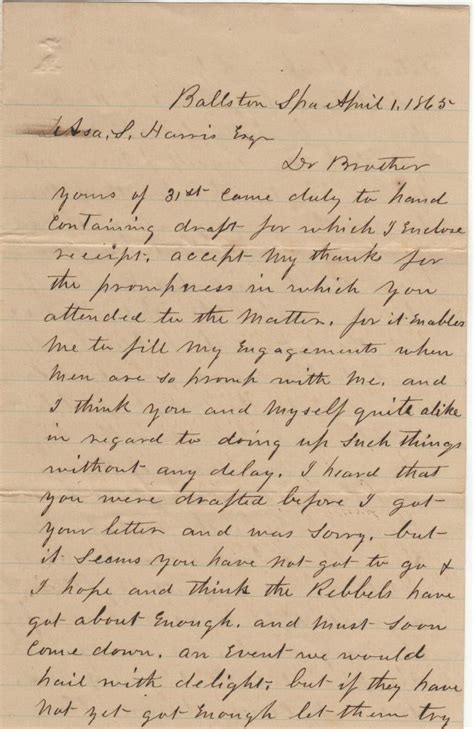 Ballston Spa April 1, 1865
Asa, S, Harris Esqr
Dr Brother
yours of 31st Came duly to hand
Containing draft for which I Enclose
receipt. accept My thanks for
the prompness in which you
attended to the Matter. for it Enables
Me to fill My Engagements when
Men are so promp with Me. and
I think you and Myself quite alike
in regard to doing up such things
without any delay. I heard that
you were drafted before I got
your letter and was sorry. but
it seems you have not got to go &
I hope and think the Rebbels have
got about Enough. and Must soon
Come down. an Event we would
hail with delight. but if they have
Not yet got Enough let them try